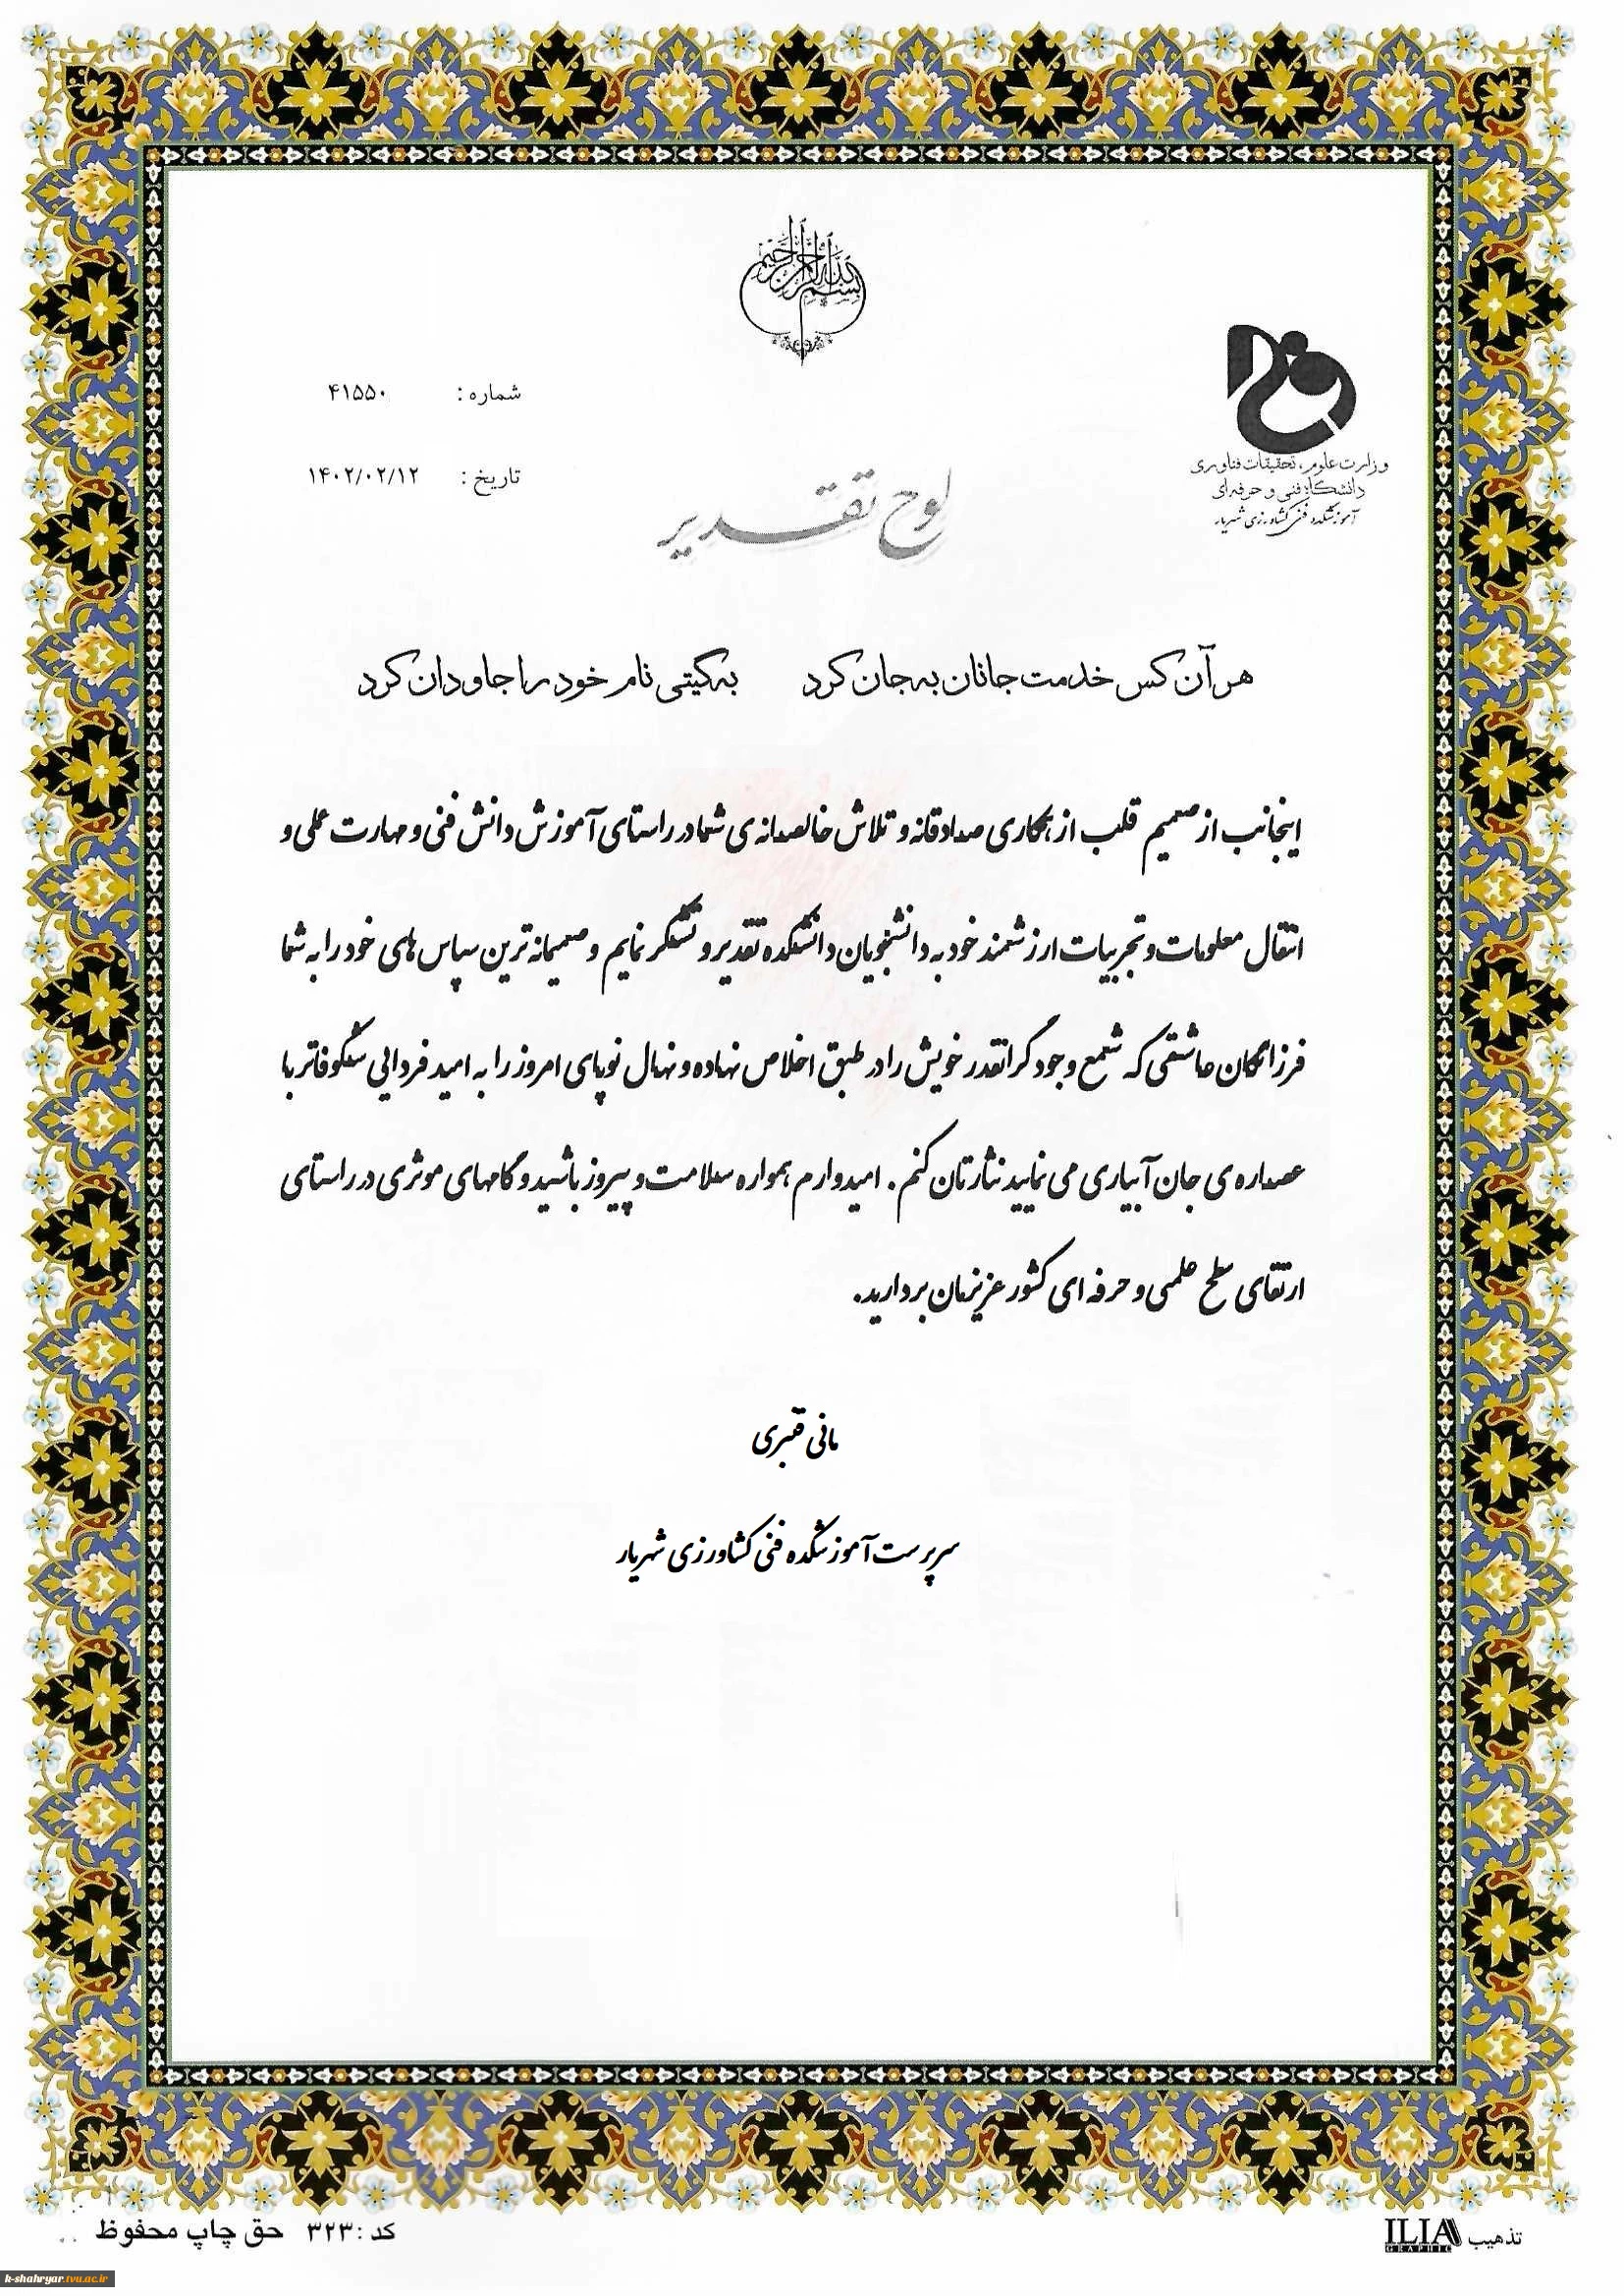 بسم الله الرحمن الرحیم
وزارت علوم، تحقیقات فناوری
دانشگاه فنی و حرفه‌ای
آموزشکده فنی کشاورزی شهریار
شماره : ۴۱۵۵۰
تاریخ : ۱۴۰۲/۰۲/۱۲
لوح تقدیر
هر آن کس خدمت جانان به جان کرد به گیتی نام خود را جاودان کرد
اینجانب از صمیم قلب از همکاری صادقانه و تلاش خالصانه ی شما در راستای آموزش دانش فنی و مهارت عملی و
انتقال معلومات و تجربیات ارزشمند خود به دانشجویان دانشکده تقدیر و تشکر نمایم و صمیمانه ترین سپاس های خود را به شما
فرزانگان عاشقی که شمع وجود گرانقدر خویش را در طبق اخلاص نهاده و نهال نوپای امروز را به امید فردایی شکوفاتر با
عصاره ی جان آبیاری می نمایید نثارتان کنم. امیدوارم همواره سلامت و پیروز باشید و گامهای موثری در راستای
ارتقای سطح علمی و حرفه ای کشور عزیزمان بردارید.
مانی قنبری
سرپرست آموزشکده فنی کشاورزی شهریار
تذهیب ILIA GRAPHIC
کد : ۳۲۳ حق چاپ محفوظ
k-shahryar.tvu.ac.ir